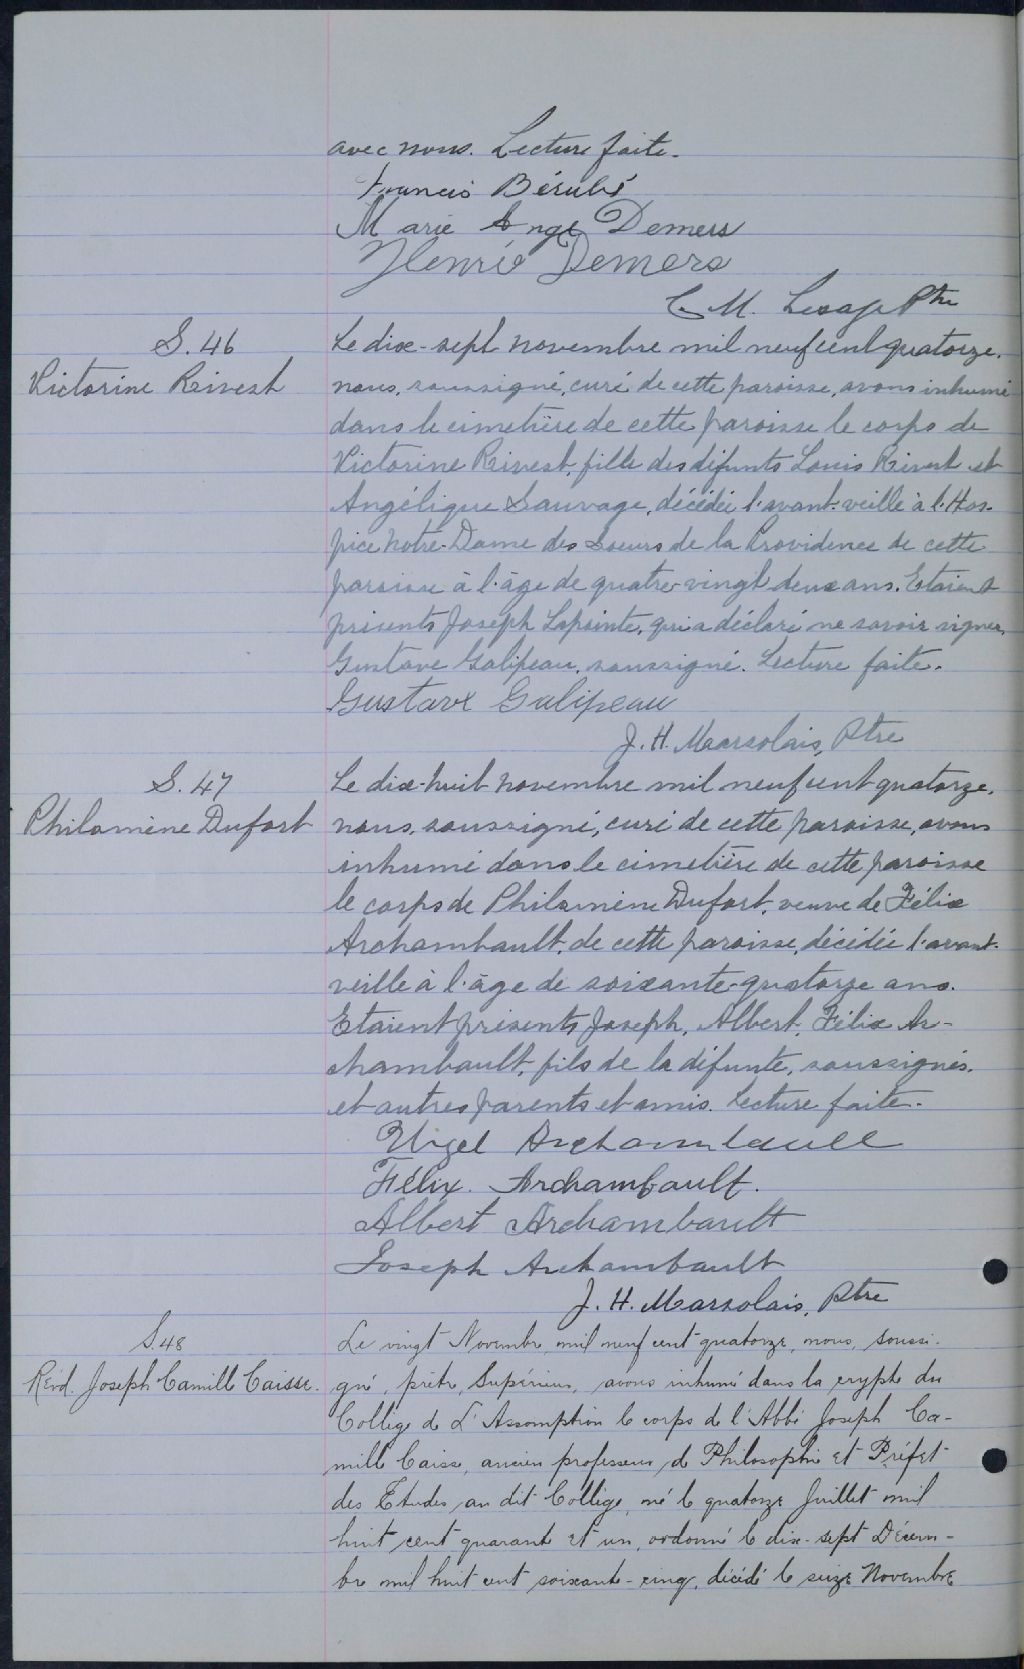 avec nous. Lecture faite.
Francis Bérubé
Marie Ange Demers
Henrie Demers
C. M. Lesage Ptre
S. 46
Victorine Rivest
Le dix-sept novembre mil neuf cent quatorze,
nous, soussigné, curé de cette paroisse, avons inhumé
dans le cimetière de cette paroisse le corps de
Victorine Rivest, fille des défunts Louis Rivest et
Angélique Sauvage, décédée l'avant-veille à l'Hos-
pice Notre-Dame des Soeurs de la Providence de cette
paroisse à l'âge de quatre-vingt deux ans. Etaient
présents Joseph Lapointe, qui a déclaré ne savoir signer,
Gustave Galipeau, soussigné. Lecture faite.
Gustave Galipeau
J. H. Marsolais, Ptre
S. 47
Philomène Dufort
Le dix-huit novembre mil neuf cent quatorze,
nous, soussigné, curé de cette paroisse, avons
inhumé dans le cimetière de cette paroisse
le corps de Philomène Dufort, veuve de Félix
Archambault, de cette paroisse, décédée l'avant-
veille à l'âge de soixante-quatorze ans.
Etaient présents Joseph, Albert, Félix Ar-
chambault, fils de la défunte, soussignés,
et autres parents et amis. Lecture faite.
Urgel Archambault
Félix. Archambault.
Albert Archambault
Joseph Archambault
J. H. Marsolais, Ptre
S. 48
Révd. Joseph Camille Caisse.
Le vingt Novembre mil neuf cent quatorze, nous, soussi-
gné, prêtre, Supérieur, avons inhumé dans la crypte du
Collège de L'Assomption le corps de l'Abbé Joseph Ca-
mille Caisse, ancien professeur de Philosophie et Préfet
des Etudes au dit Collège, né le quatorze Juillet mil
huit cent quarante et un, ordonné le dix-sept Décem-
bre mil huit cent soixante-cinq, décédé le seize Novembre